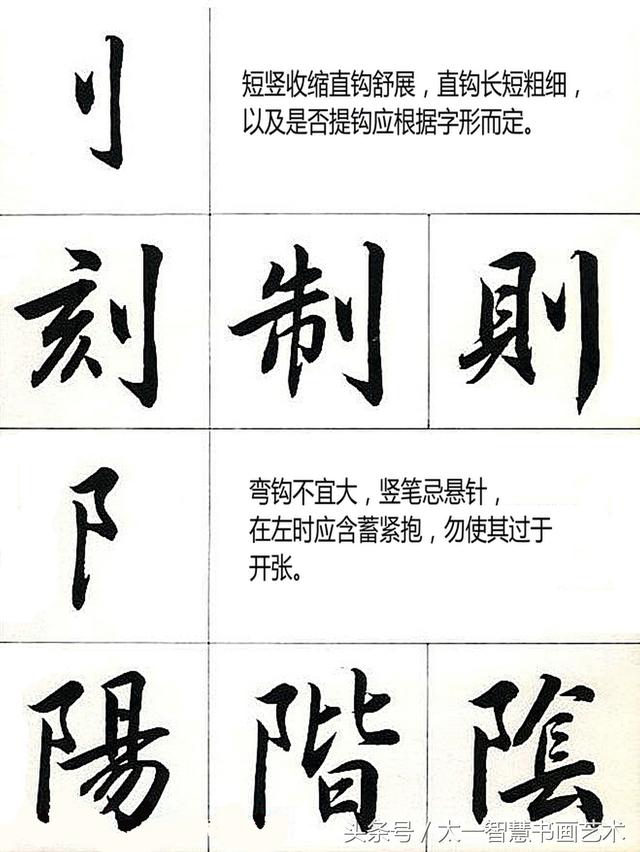 刂
短竖收缩直钩舒展，直钩长短粗细，
以及是否提钩应根据字形而定。
刻 制 則
阝
弯钩不宜大，竖笔忌悬针，
在左时应含蓄紧抱，勿使其过于
开张。
陽 階 陰
头条号 / 太一智慧书画艺术